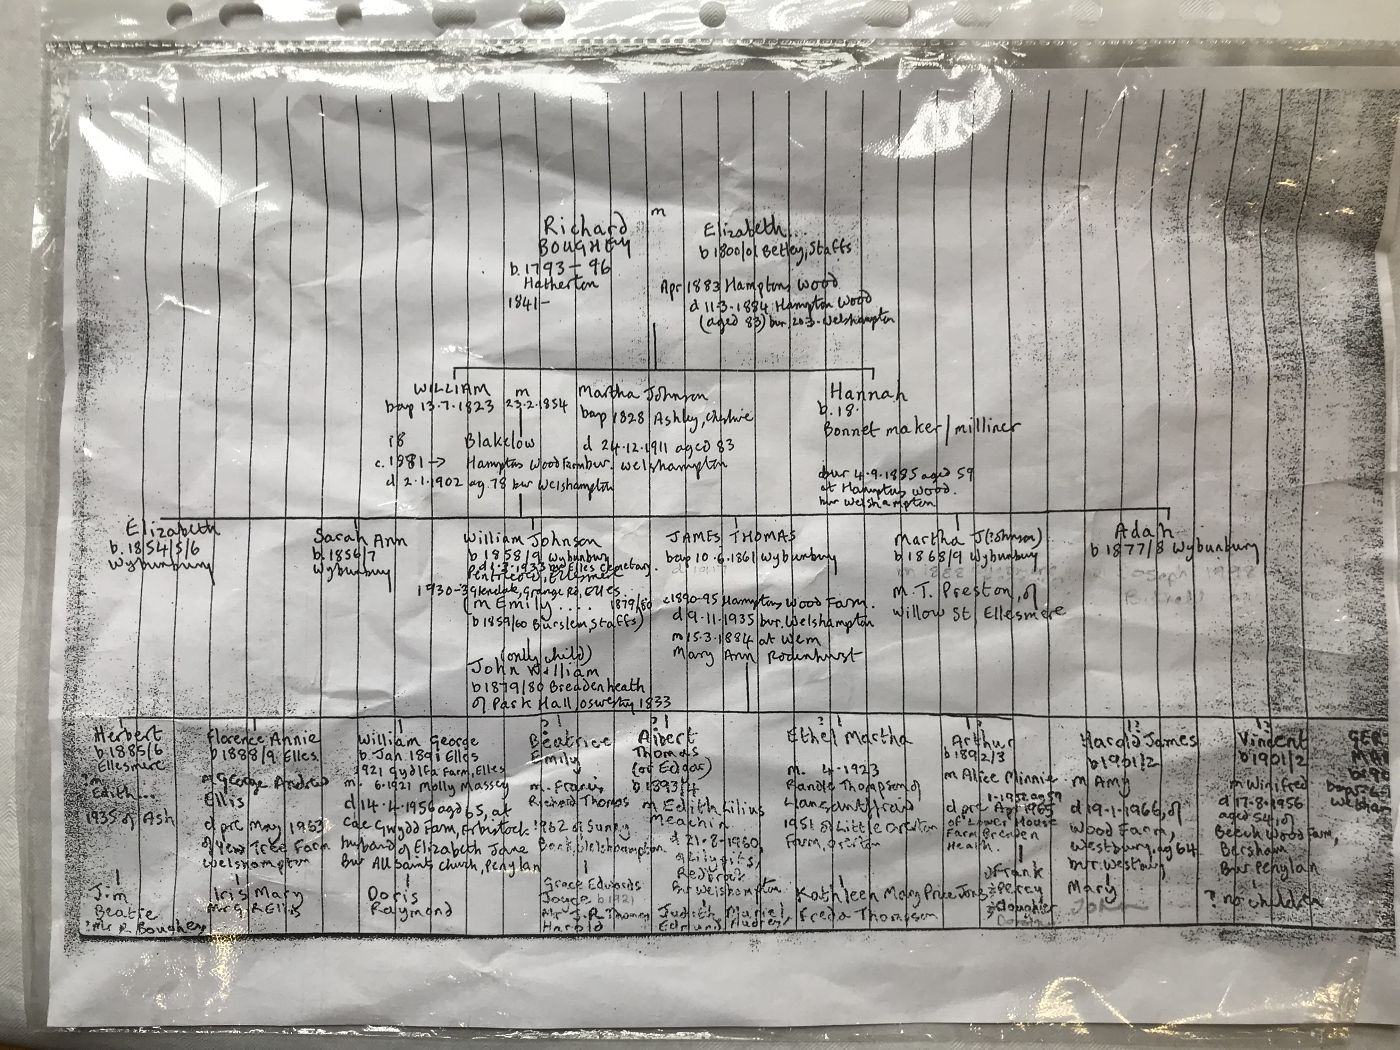 m
Richard
BOUGHEY
b. 1793 - 96
Hatherton
1841 -
Elizabeth..
b 1800/01 Betley, Staffs
Apr 1883 Hampton Wood
d 11-3-1884 Hampton Wood
(aged 83) bur. 20-3- Welshampton
WILLIAM m Martha Johnson
bap 13.7.1823 23.2.1854 bap 1828 Ashley, Cheshire
18 Blakelow d 24.12.1911 aged 83
c. 1981 → Hampton Wood Farm bur. Welshampton
d 2.1.1902 ag. 78 bur Welshampton
Hannah
b. 18.
Bonnet maker/milliner
bur 4.9.1885 aged 59
at Hampton Wood.
bur Welshampton
Elizabeth
b. 1854/5/6
Wybunbury
Sarah Ann
b. 1856/7
Wybunbury
William Johnson
b 1858/9 Wybunbury
Ellesmere
1930-3 Glendale, Grange Rd, Elles..
(m Emily .... 1879/80
b 1859/60 Burslem, Staffs)
(only child)
John William
b 1879/80 Breadenheath
of Park Hall, Oswestry 1833
JAMES THOMAS
bap 10.6.1861 Wybunbury
c1890-95 Hampton Wood Farm.
d 9-11-1935 bur. Welshampton
m 15.3.1884 at Wem
Mary Ann Rodenhurst
Martha J (?Johnson)
b 1868/9 Wybunbury
m. T. Preston, of
Willow St Ellesmere
Adah
b 1877/8 Wybunbury
Herbert
b 1885/6
Ellesmere
m
Edith...
1935 of Ash
Jim
Beatie
?Mr R. Boughey
Florence Annie
b 1888/9 Elles.
m George Andrew
Ellis
d pre May 1963
of Yew Tree Farm
Welshampton
Iris Mary
Mr G. R Ellis
William George
b Jan. 1891 Elles
1921 Gydlfa Farm, Elles
m. 6.1921 Molly Massey
d 14-4-1956 aged 65, at
Cae Gwydd Farm, Erbistock
husband of Elizabeth Jane
Bur All Saints church, Penylan
Doris
Raymond
? !
Beatrice
Emily
m. Francis
Richard Thomas
1962 of Sunny
Bank, Welshampton
Grace Edwards
Joyce b 1921
Mr J. R Thomas
Harold
? !
Albert
Thomas
(or Edgar)
b 1893/4
m Edith Lilius
Meachin
d 21-8-1960,
Bur Welshampton
Judith, Muriel
Edmund Audrey
?
Ethel Martha
m. 4-1923
Randle Thompson of
Llansantffraid
1951 of Little Overton
Farm, Overton
Kathleen Mary Price Jones
Freda Thompson
? ?
Arthur
b 1892/3
m Alice Minnie
d pre Apr 1965
of Lower House
Farm Breaden
Heath.
Frank
Percy
daughter
!?
Harold James
b 1901/2
m Amy
d 19-1-1966, of
Wood Farm,
Westbury, ag 64
bur. Westbury
Mary
John
!?
Vincent
b 1901/2
m Winifred
d 17-8-1956
aged 54, of
Beech Wood Farm,
Bersham
Bur Penylan
? no children